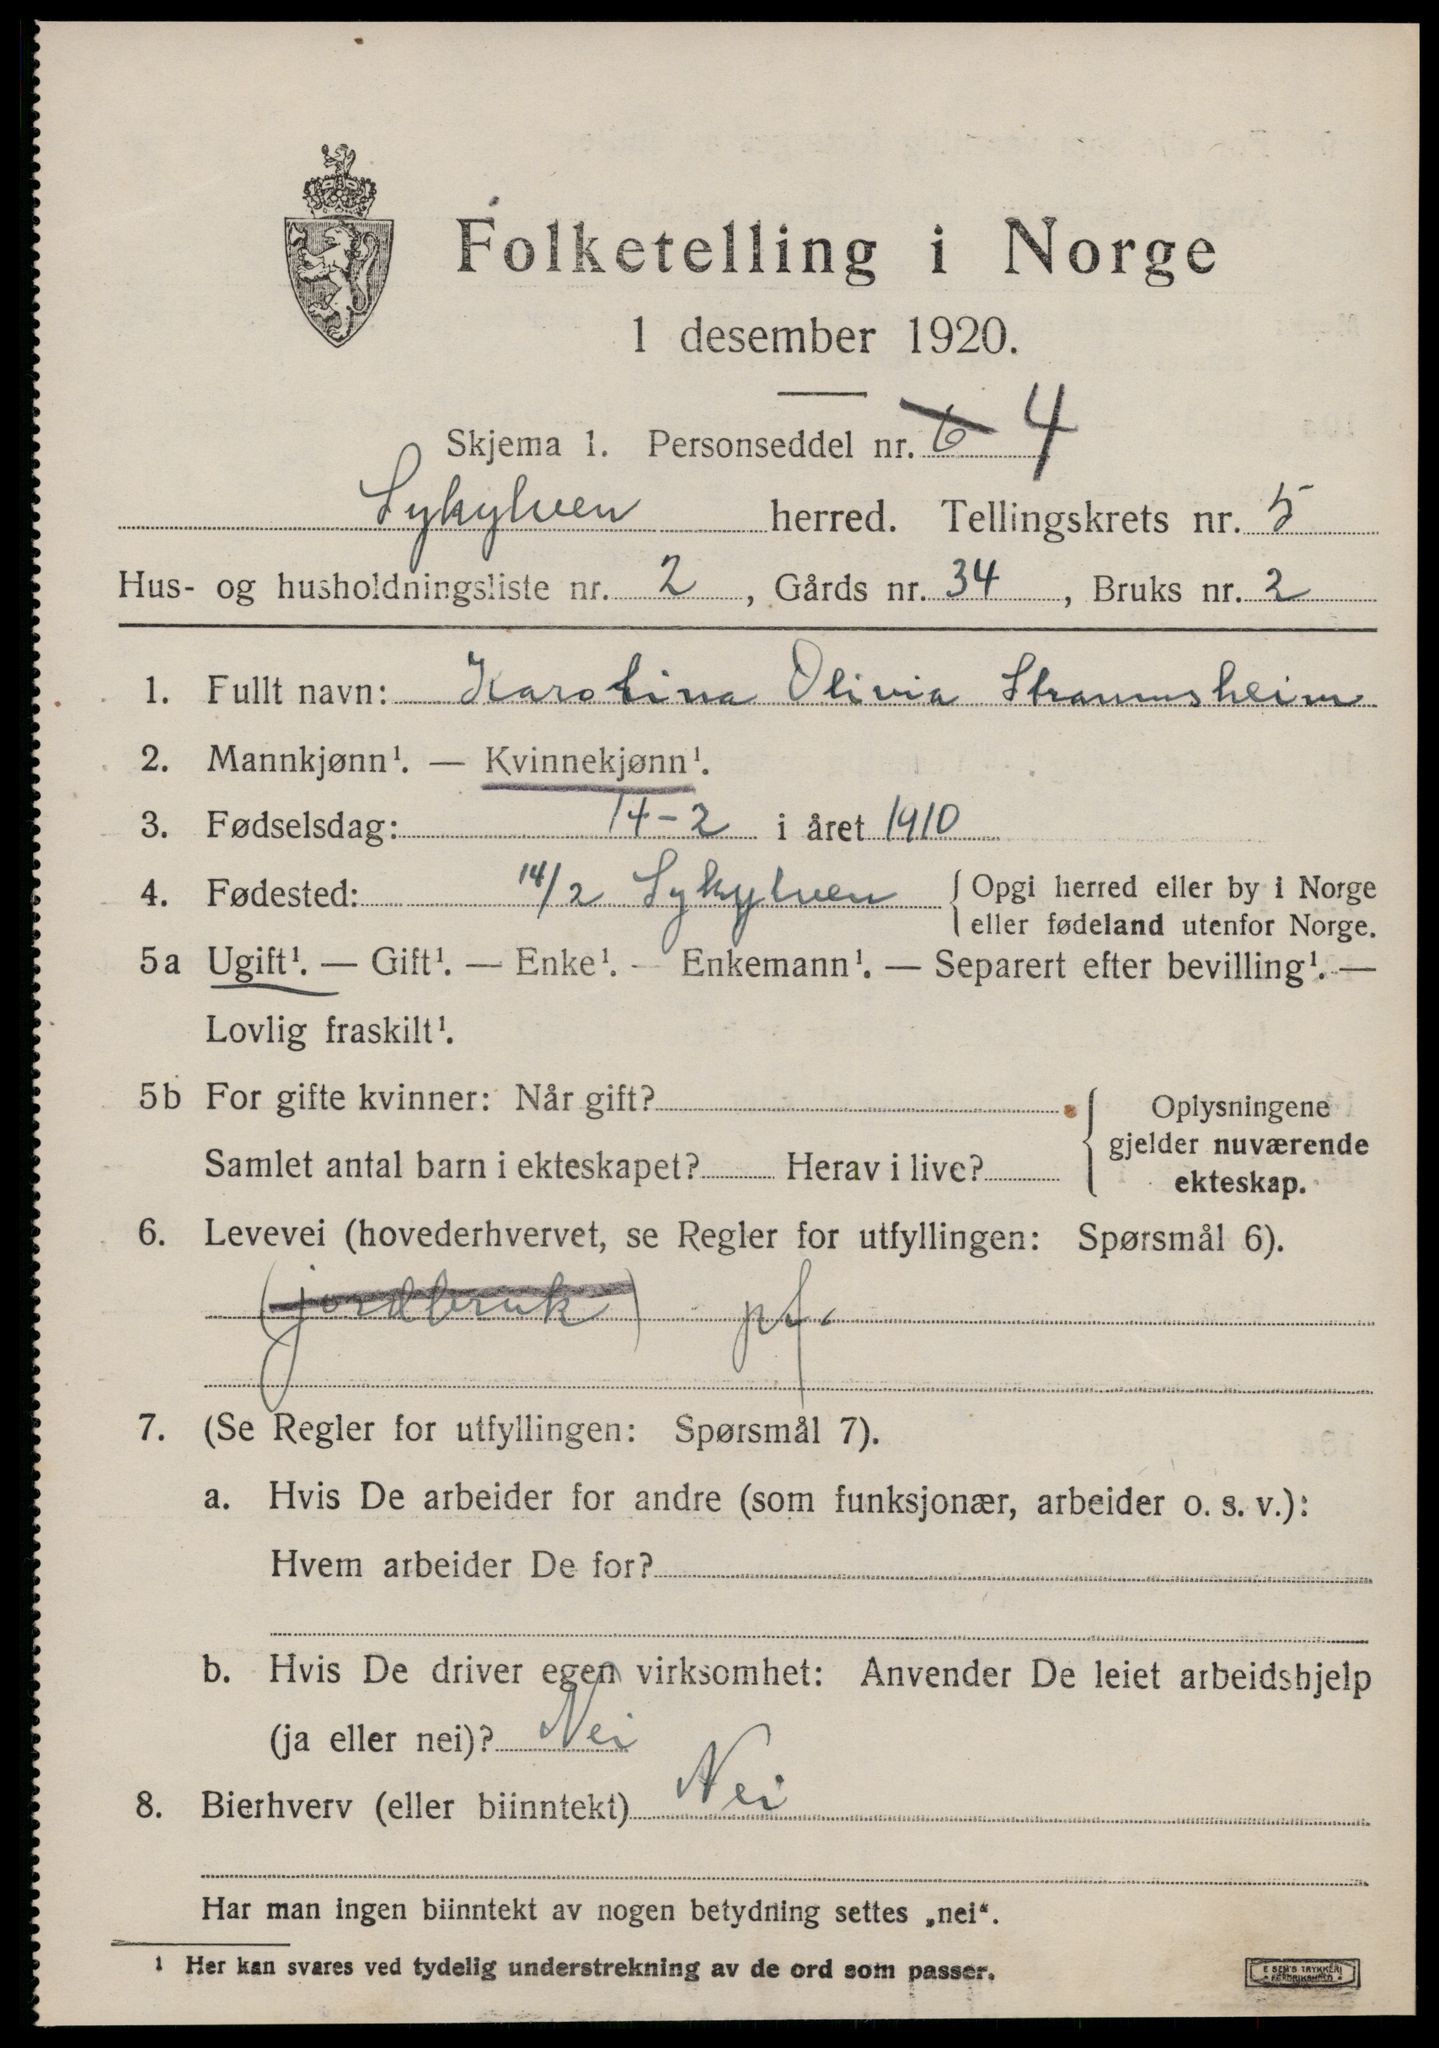 Folketelling i Norge
1 desember 1920.
Skjema 1. Personseddel nr. 6 4
Sykylven herred. Tellingskrets nr. 5
Hus- og husholdningsliste nr. 2, Gårds nr. 34, Bruks nr. 2
1. Fullt navn: Karolina Olivia Straumsheim
2. Mannkjønn¹. — Kvinnekjønn¹.
3. Fødselsdag: 14-2 i året 1910
4. Fødested: 14/2 Sykylven { Opgi herred eller by i Norge
eller fødeland utenfor Norge.
5a Ugift¹. — Gift¹. — Enke¹. — Enkemann¹. — Separert efter bevilling¹. —
Lovlig fraskilt¹.
5b For gifte kvinner: Når gift? { Oplysningene
gjelder nuværende
Samlet antal barn i ekteskapet? Herav i live?
ekteskap.
6. Levevei (hovederhvervet, se Regler for utfyllingen: Spørsmål 6).
(jordbruk) pf.
7. (Se Regler for utfyllingen: Spørsmål 7).
a. Hvis De arbeider for andre (som funksjonær, arbeider o. s. v.):
Hvem arbeider De for?
b. Hvis De driver egen virksomhet: Anvender De leiet arbeidshjelp
(ja eller nei)? Nei
8. Bierhverv (eller biinntekt) Nei
Har man ingen biinntekt av nogen betydning settes „nei“.
¹ Her kan svares ved tydelig understrekning av de ord som passer.
E SEM'S TRYKKERI
FREDRIKSHALD